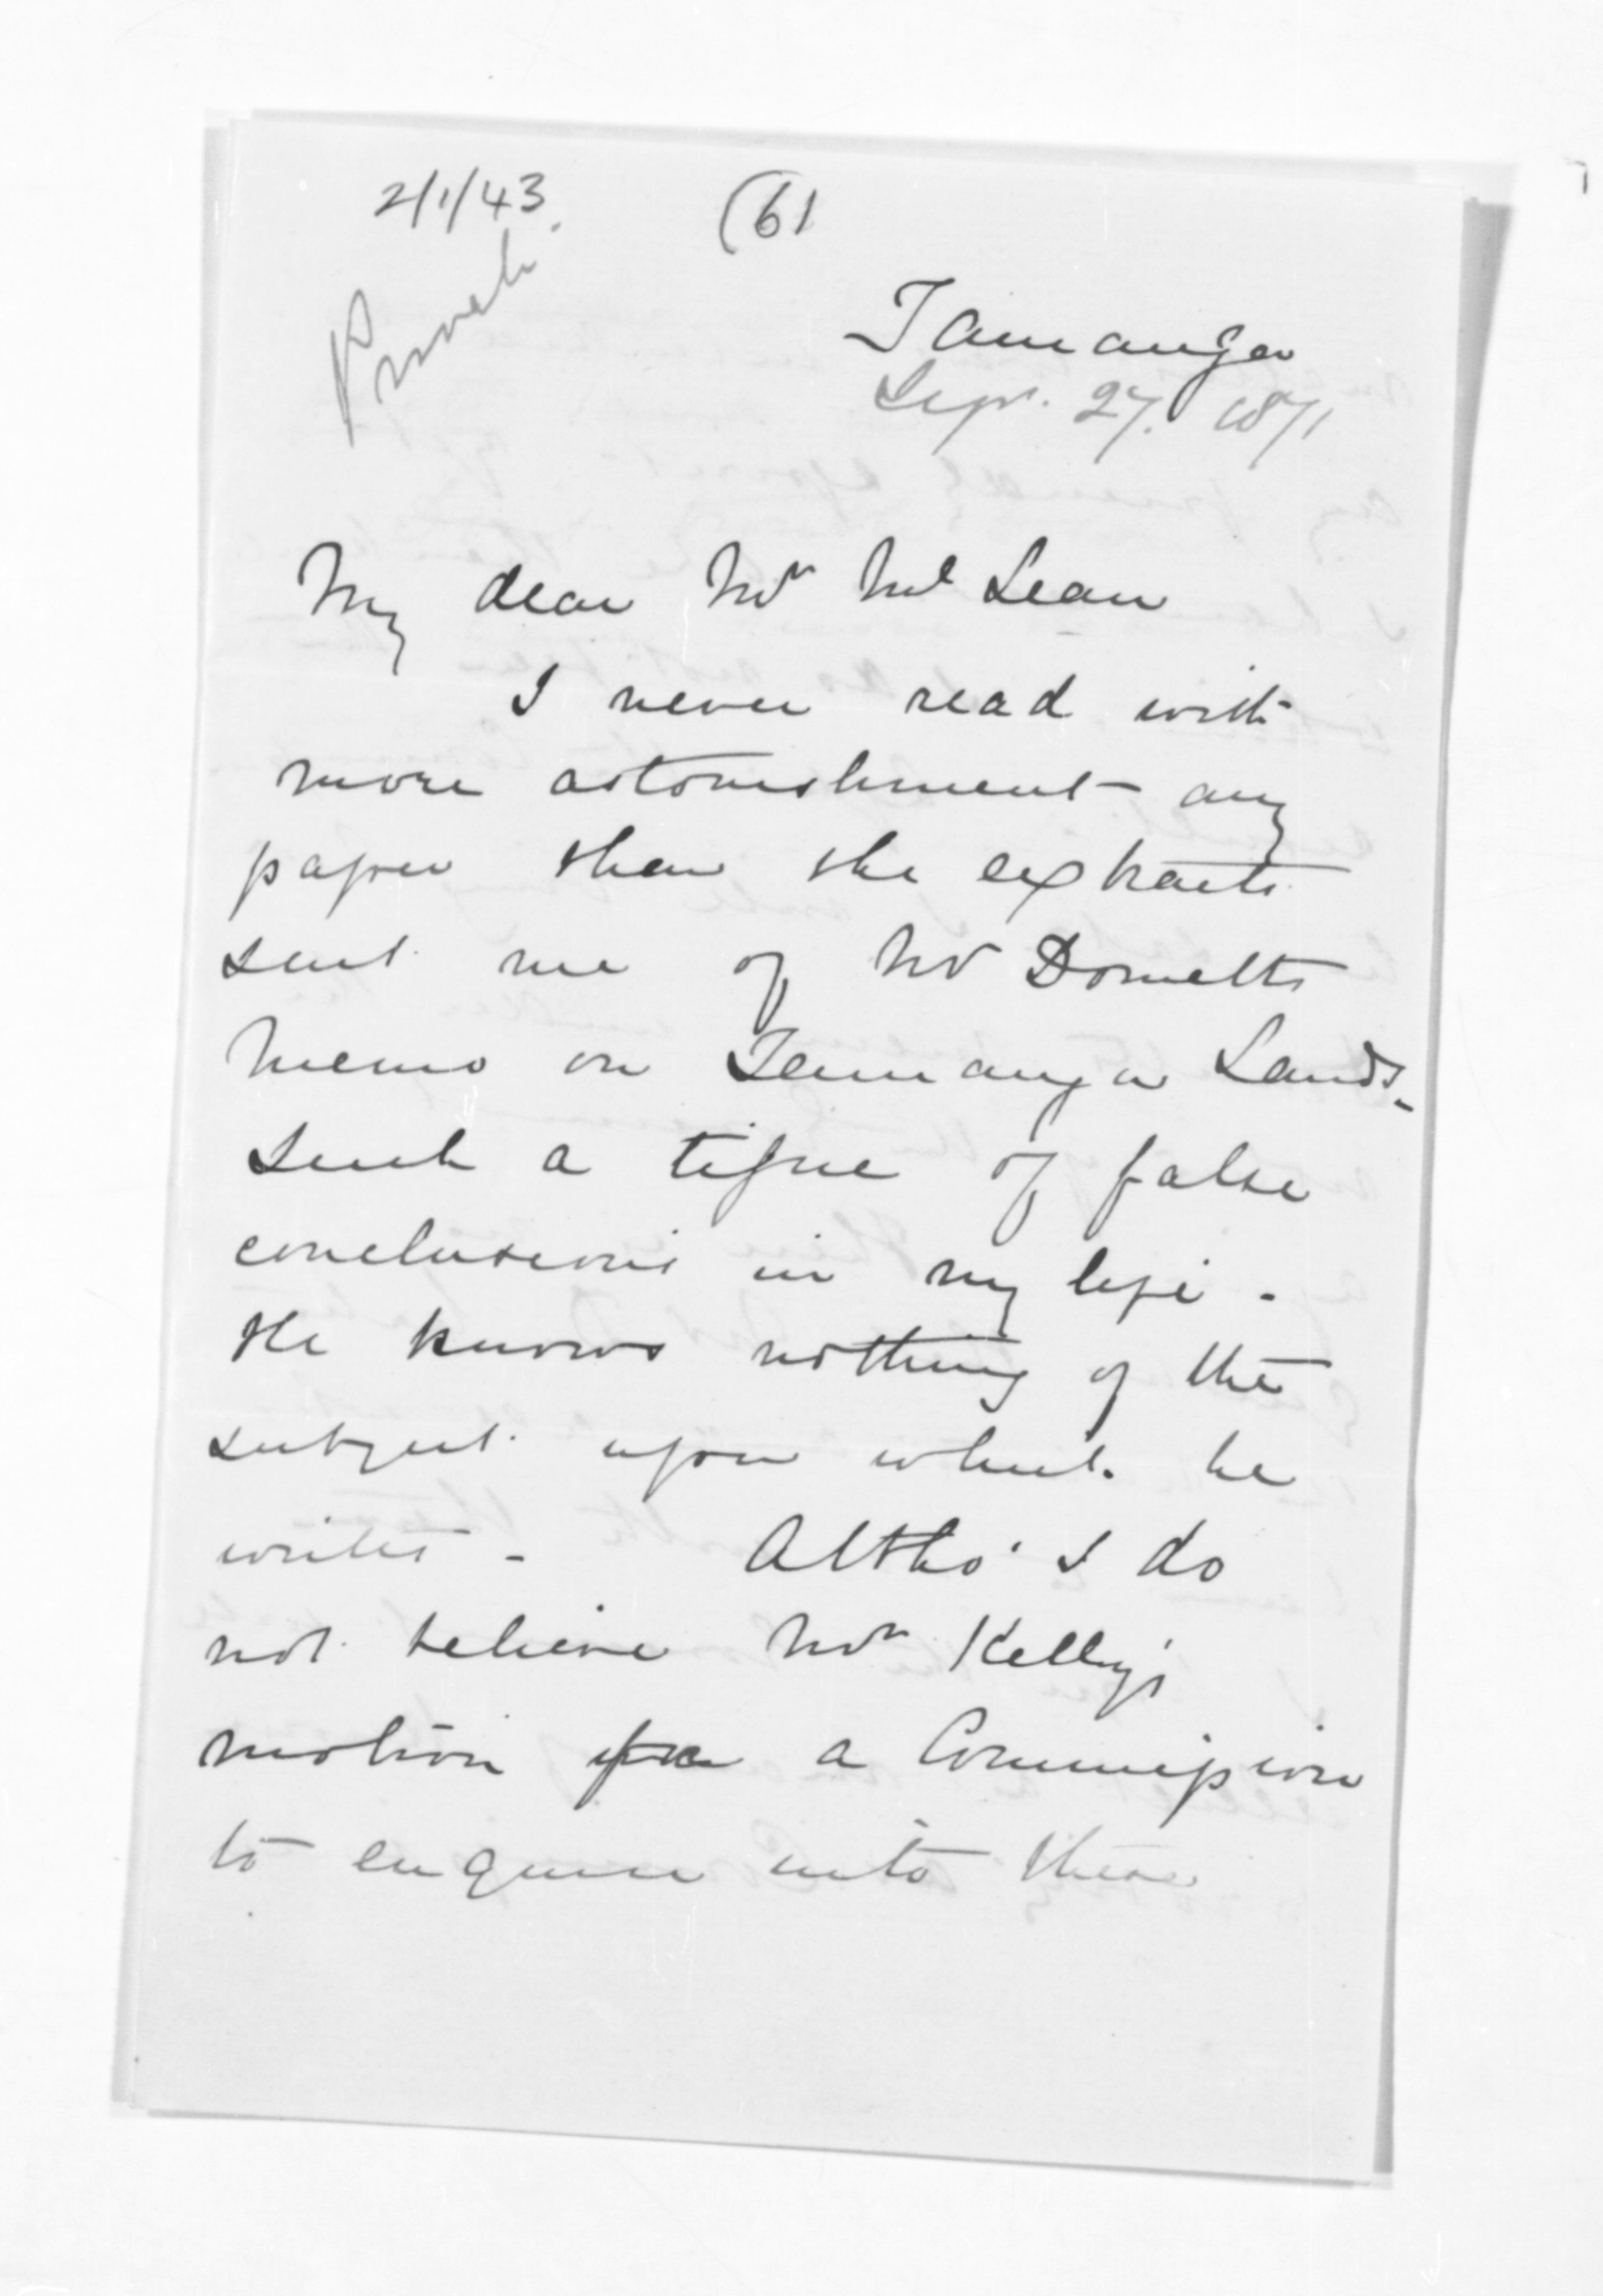 2/1/43.
(61
Private
Tauranga
Sepr. 27. 1871
My dear Mr McLean
I never read with
more astonishment any
paper than the extracts
sent me of Mr Dometts
memo on Tauranga Lands.
Such a tissue of false
conclusions in my life -
He knows nothing of the
subject upon which he
writes - Altho' I do
not believe Mr Kelly's
motion for a Commission
to enquire into these